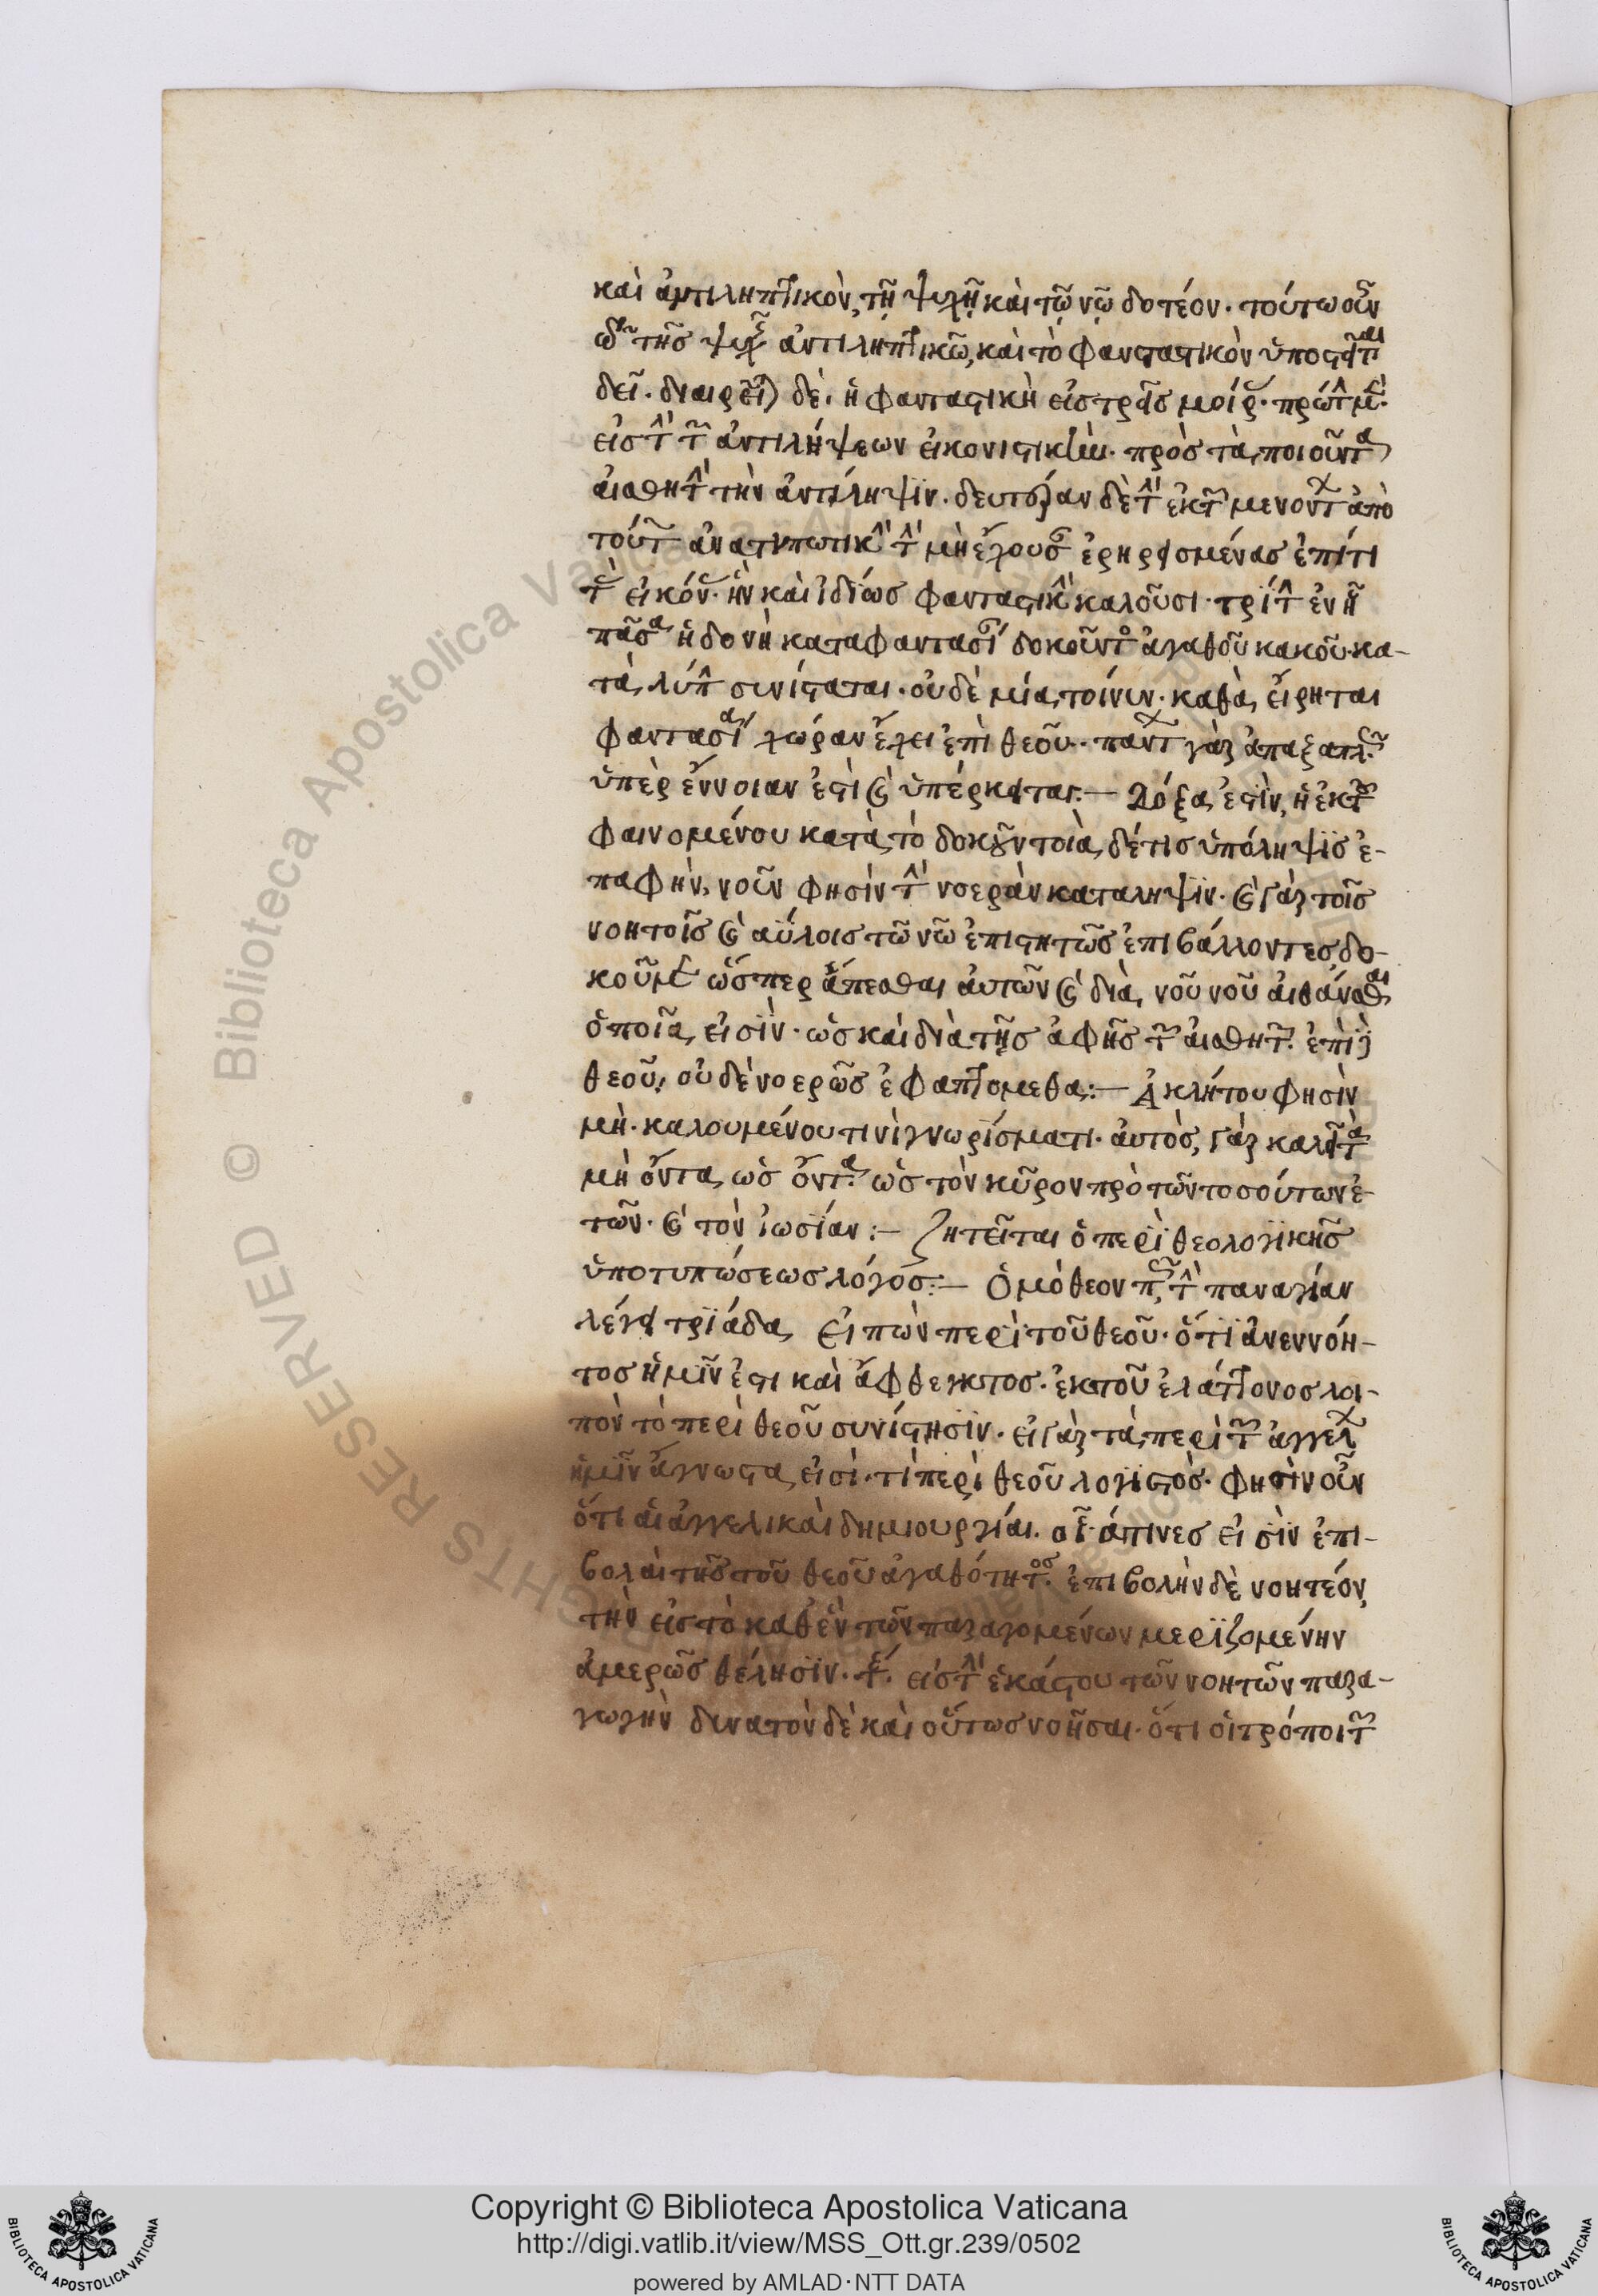 καὶ ἀντιληπτικὸν, τῇ ψυχῇ καὶ τῷ νῷ δοτέον· τούτω οὖν
τῆς ψυχ ἀντιληπτικῶ, καὶ τὸ φανταστικὸν ὑποστ
δεῖ. διαιρεῖ δὲ. ἡ φανταστικὴ εἰς τρεῖς μοίρ· πρώτ μ·
εἰς τ τ ἀντιλήψεων εἰκονιστικὴν· πρὸς τὰ ποιοῦντα
αἰσθητ τὴν ἀντίληψιν. δευτέραν δὲ τ ἐκ τ μενοντ ἀπὸ
τούτ ἀνατυπωτικ τ μὴ ἔχουσ ἐρηρεισμένας ἐπί τι
τ εἰκόν· ἣν καὶ ἰδίως φανταστικ καλοῦσι· τρίτ ἐν ᾗ
πᾶσα ἡδονὴ κατα φαντασί δοκοῦντο ἀγαθοῦ κακοῦ· κα-
τὰ λύπ συνίσταται· οὐδὲ μία τοίνυν· καθὰ εἴρηται
φαντασία χώραν ἔχει ἐπὶ θεοῦ· παντ γὰρ ἁπαξαπλ
ὑπὲρ ἔννοιαν ἐστὶ καὶ ὑπέρκειται:— Δόξα ἐστὶν, ἡ ἐκ τ
φαινομένου κατὰ τὸ δοκοῦν τοιὰ δέ τις ὑπόληψις ἐ-
παφὴν, νοῦν φησὶν τ νοερὰν καταληψιν· καὶ γὰρ τοῖς
νοητοῖς καὶ αΰλοις τῶ νῶ ἐπιστητῶς ἐπιβάλλοντες δο-
κοῦμεν ὥσπερ ἅπτεσθαι αὐτῶν καὶ διὰ νοῦ νοῦ αἰσθάνεσθαι
ὁποῖα εἰσὶν· ὡς καὶ διὰ τῆς ἁφῆς τ αἰσθητ. ἐπὶ
θεοῦ, οὐδὲ νοερῶς ἐφαπτομεθα:— Ἀκλήτου φησὶν
μὴ· καλουμένου τινὶ γνωρίσματι· αὐτὸς, γὰρ καλεῖ τὰ
μὴ ὄντα ὡς ὄντα. ὡς τὸν κῦρον πρὸ τῶν τοσούτων ἐ-
τῶν· καὶ τὸν ἰωσίαν:— ζητεῖται ὁ περὶ θεολογικῆς
ὑποτυπώσεως λόγος:— Ὁμόθεον π τ παναγίαν
λέγει τριάδα, Εἰπὼν περὶ τοῦ θεοῦ· ὅτι ἀνεννόη-
τος ἡμῖν ἐστι καὶ ἄφθεγκτος· ἐκ τοῦ ἐλάττονος λοι-
πὸν τὸ περὶ θεοῦ συνίστησιν· εἰ γὰρ τὰ περὶ τ ἀγγέλ
ἡμῖν ἄγνωστα εἰσὶ· τί περὶ θεοῦ λογιστὸς· φησὶν οὖν
ὅτι αἱ ἀγγελικαὶ δημιουργίαι. αἵτινες εἰσὶν ἐπι-
βολαὶ τῆς τοῦ θεοῦ ἀγαθότητος. ἐπιβολὴν δὲ νοητέον,
τὴν εἰς τὸ καθ ἓν τῶν παραγομένων μεριζομένην
ἀμερῶς θέλησιν. εἰς τ ἑκάστου τῶν νοητῶν παρα-
γωγὴν δυνατὸν δὲ καὶ οὕτως νοῆσαι· ὅτι οἱ τρόποι τ
© Biblioteca Apostolica Vaticana
Copyright © Biblioteca Apostolica Vaticana
http://digi.vatlib.it/view/MSS_Ott.gr.239/0502
powered by AMLAD·NTT DATA
BIBLIOTECA APOSTOLICA VATICANA
BIBLIOTECA APOSTOLICA VATICANA